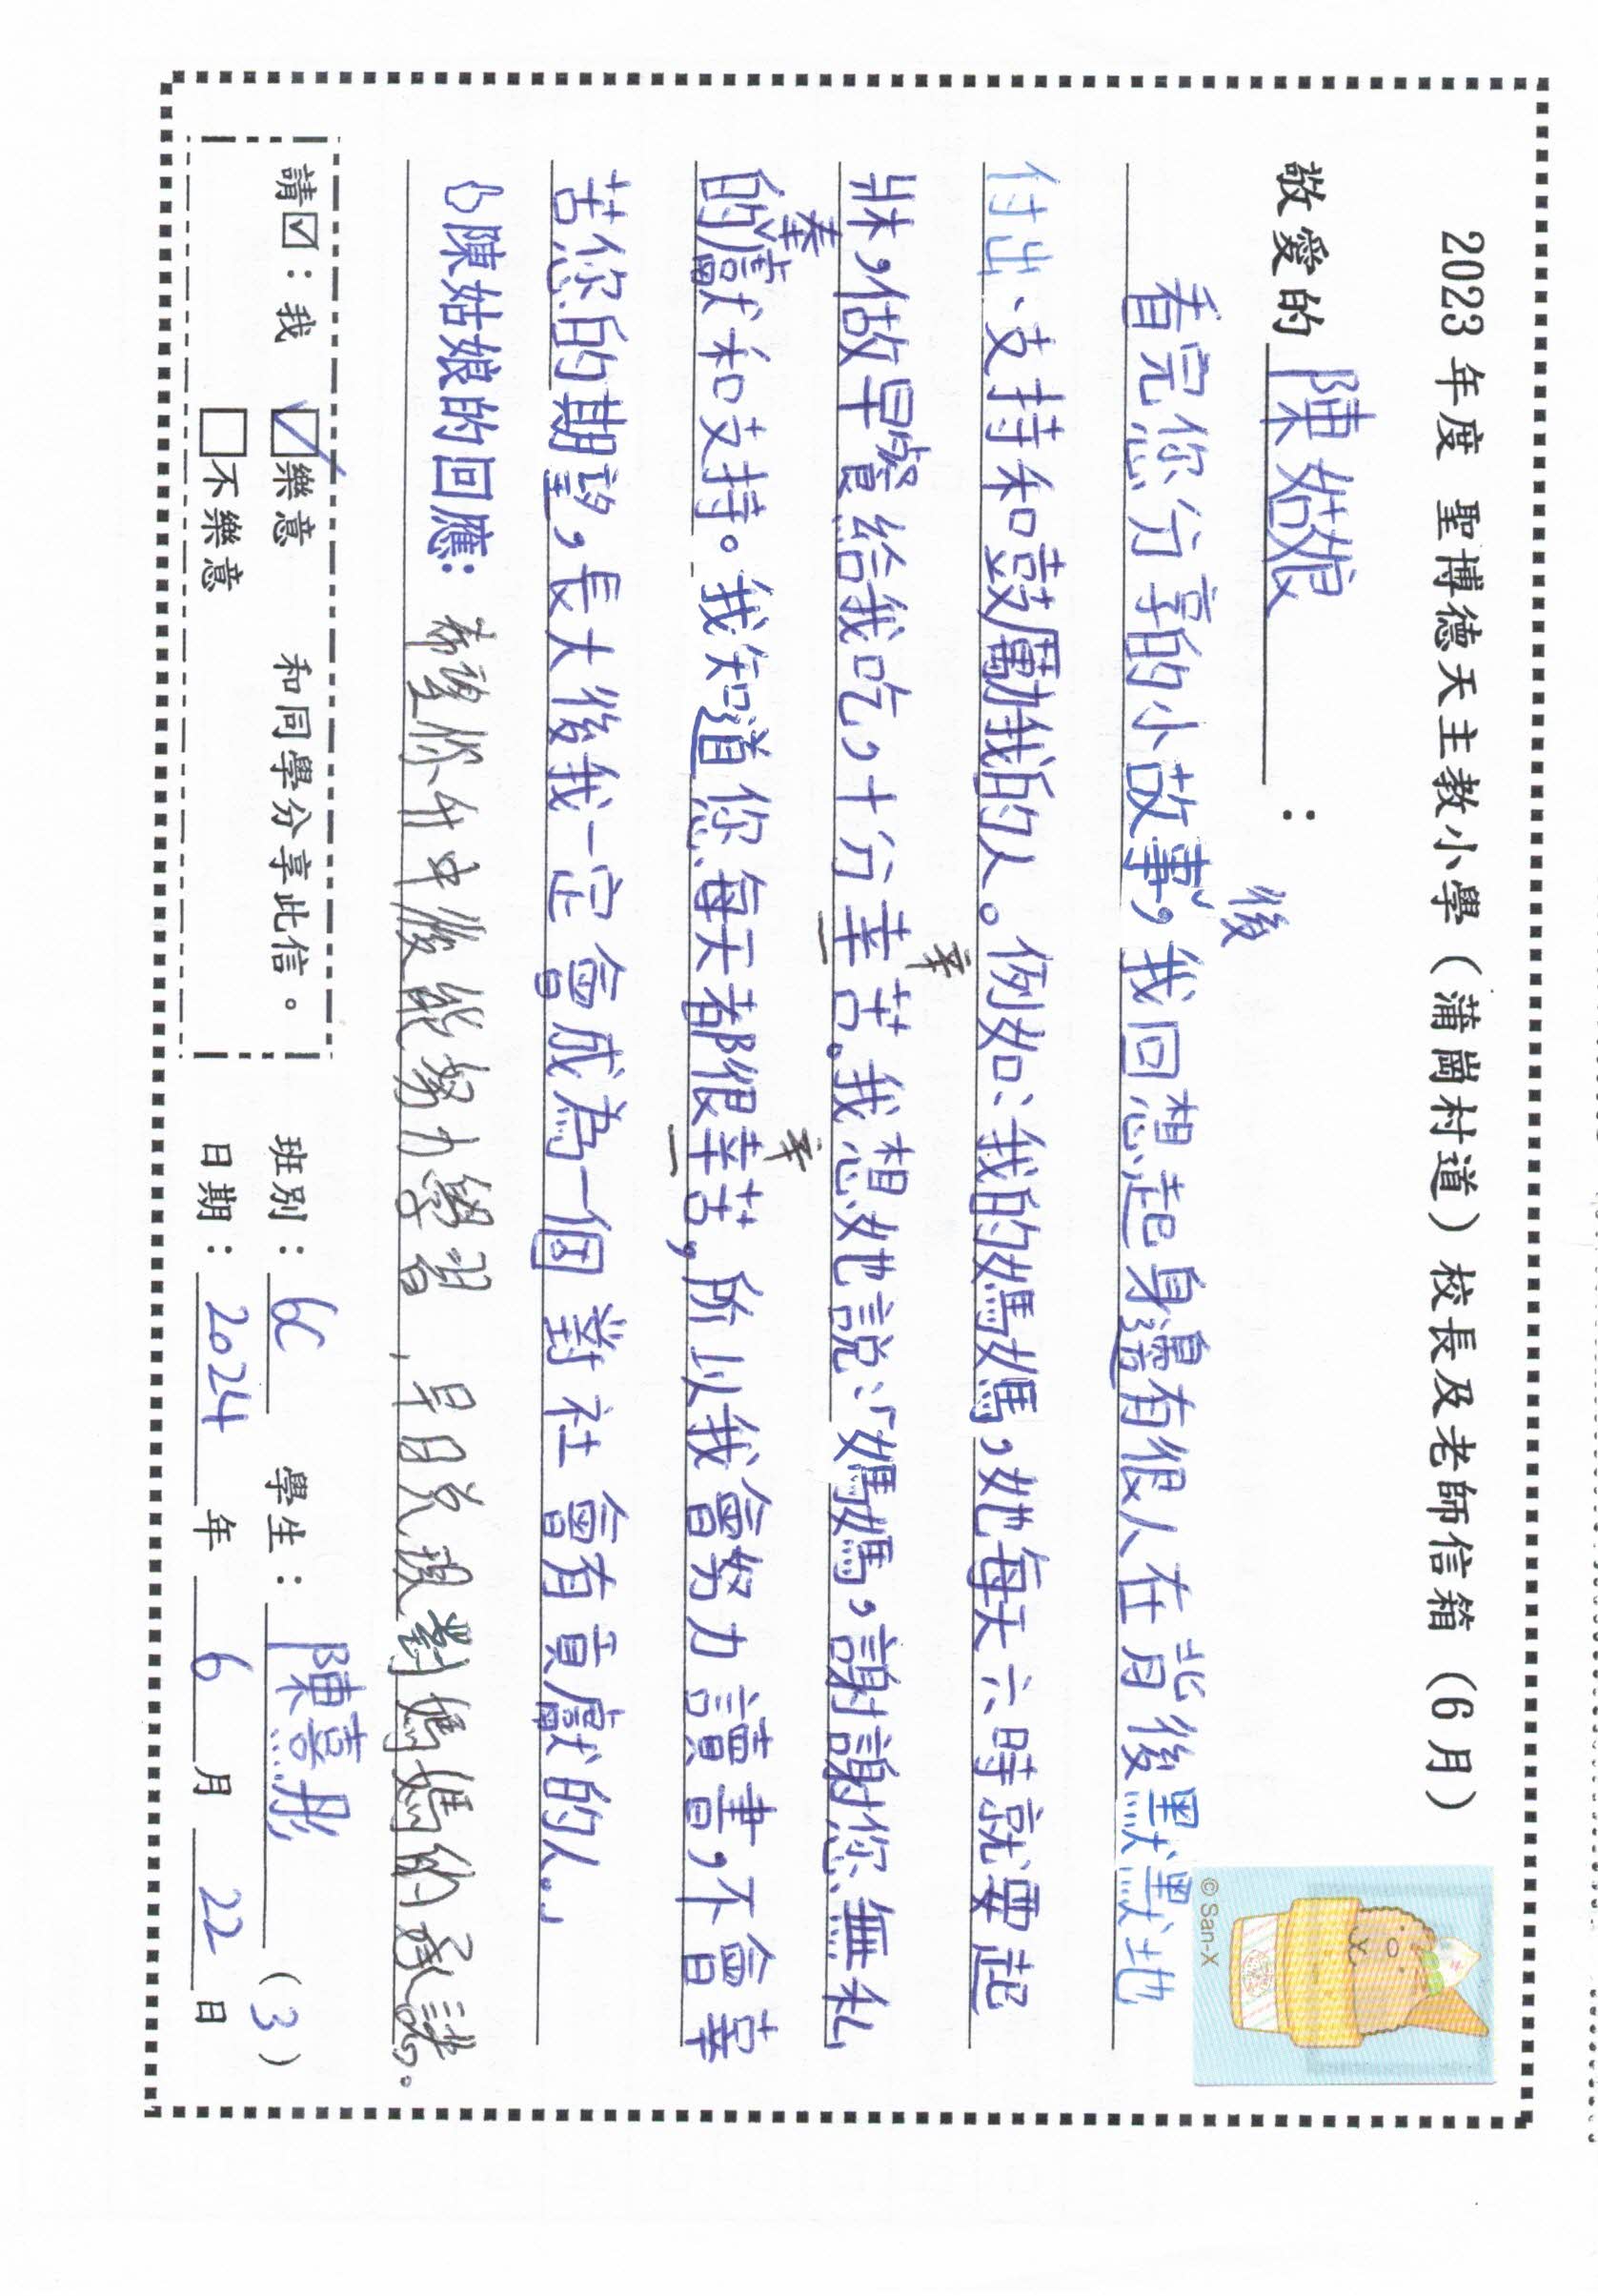 2023年度 聖博德天主教小學(蒲崗村道)校長及老師信箱(6月)
敬愛的 陳姑娘：
後
看完你分享的小故事，我回想起身邊有很人在背後默默地
付出、支持和鼓勵我的人。例如：我的媽媽，她每天六時就要起
辛
牀，做早餐給我吃，十分幸苦。我想她說：「媽媽，謝謝您無礼
奉 辛
的獻和支持。我知道您每天都很幸苦，所以我會努力讀書，不會辜
苦您的期望，長大後我一定會成為一個對社會有貢獻的人。」
陳姑娘的回應：希望你升中後繼努力學習，早日兌現對媽媽的承諾。
請☑：我 ☑樂意 和同學分享此信。
□不樂意
班別：6C 學生：陳喜彤 (3)
日期：2024年6月22日
© San-X